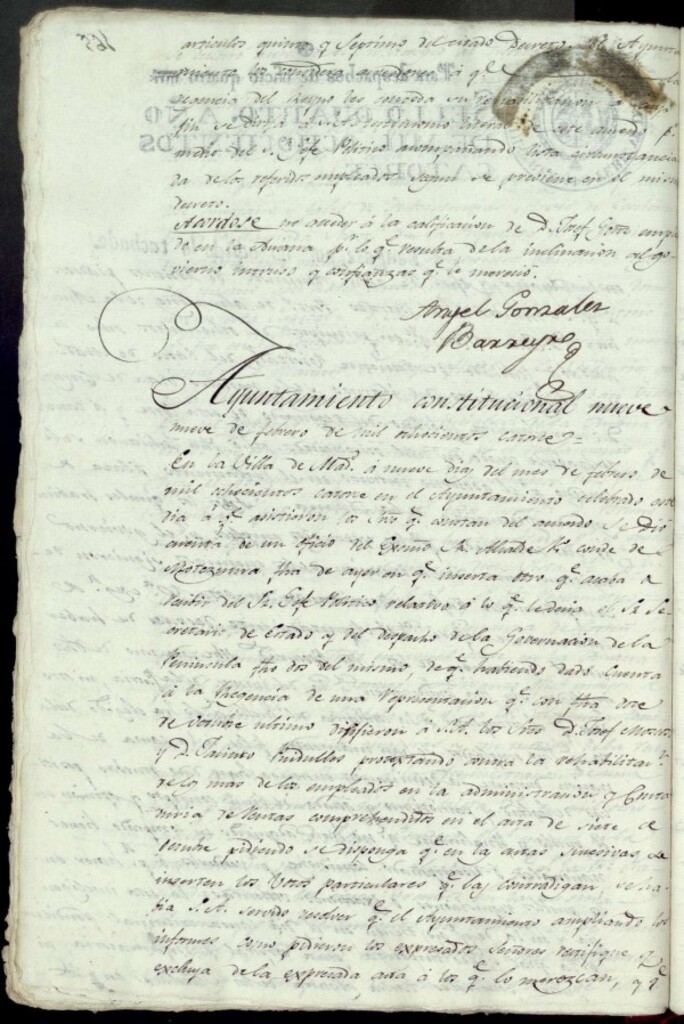 165
articulos quinto y Septimo del citado Decreto. El Ayunta
Regencia del Reyno les conceda su rehabilitacion á cuyo
fin se dirija á S.A. testimonio literal de este acuerdo p.r
medio del S.r Gefe Politico acompañando lista circunstancia
da de los referidos empleados segun se previene en el mismo
decreto.
Acordose no acceder á la calificacion de D. Josef Gomo emplea
do en la Aduana p.r lo q.e resulta de la inclinacion al go
vierno intruso y confianzas q.e le merecio.
Angel Gonzalez
Barreyro
Ayuntamiento constitucional nueve
nueve de febrero de mil ochocientos catorce=
En la Villa de Mad.d á nueve dias del mes de febrero de
mil ochocientos catorce en el Ayuntamiento celebrado este
dia á q.e asistieron los S.res q.e constan del acuerdo se dió
cuenta de un oficio del Excmo S.r Alcalde 1.º conde de
Motezuma fha de ayer en q.e inserta otro q.e acaba de
recibir del S.r Gefe Politico relativo á lo q.e le decia el S.r Se
cretario de Estado y del despacho de la Governacion de la
Peninsula fho dos del mismo, de q.e habiendo dado cuenta
á la Regencia de una representacion q.e con fha doce
de Octubre ultimo dirigieron á S.A. los S.res D. Josef
y D. Jacinto protextando contra la rehabilitac.n
de los mas de los empleados en la administracion y Conta
duria de Rentas comprehendidos en el acta de siete de
Octubre pidiendo se disponga q.e en las actas sucesivas se
inserten los votos particulares q.e las contradigan, se ha
bia S.A. servido resolver q.e el Ayuntamiento ampliando los
informes como pidieron los expresados Señores rectifique y
excluya de la expresada acta á los q.e lo merezcan, y q.e